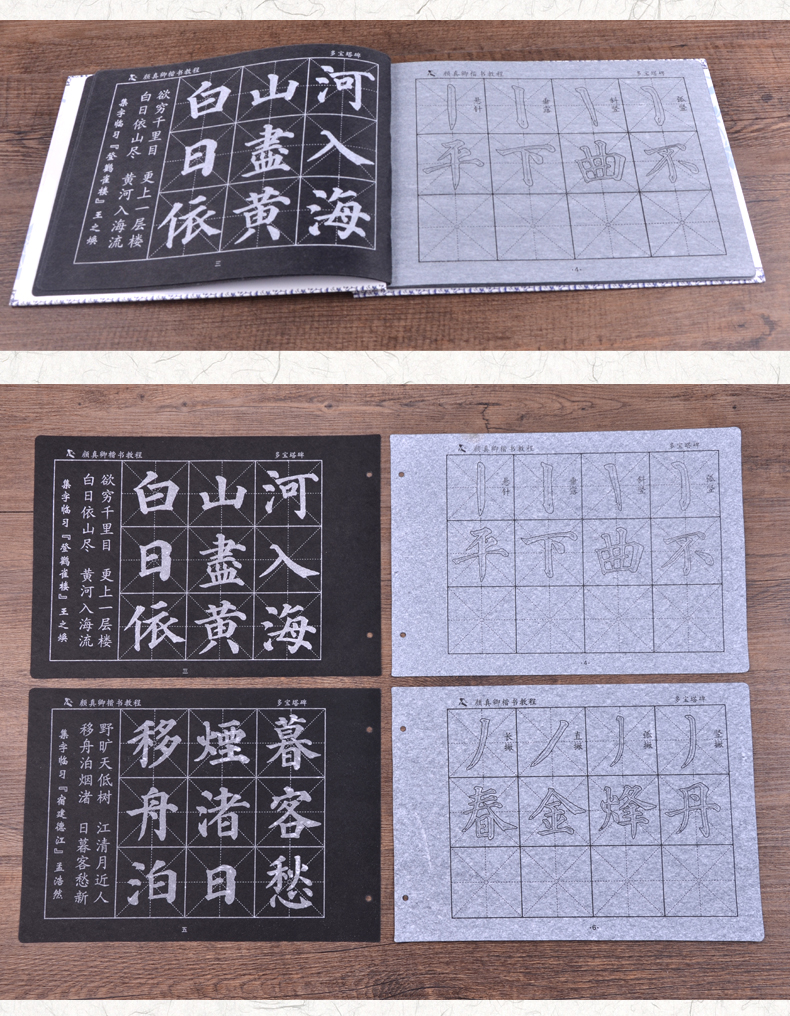 颜真卿楷书教程
多宝塔碑
集字临习『登鹳雀楼』王之焕
白日依山尽 黄河入海流
欲穷千里目 更上一层楼
白日依
山盡黄
河入海
三
颜真卿楷书教程
多宝塔碑
悬针
垂露
斜竖
弧竖
平下曲不
-4-
颜真卿楷书教程
多宝塔碑
集字临习『登鹳雀楼』王之焕
白日依山尽 黄河入海流
欲穷千里目 更上一层楼
白日依
山盡黄
河入海
三
颜真卿楷书教程
多宝塔碑
悬针
垂露
斜竖
弧竖
平下曲不
-4-
颜真卿楷书教程
多宝塔碑
集字临习『宿建德江』孟浩然
移舟泊烟渚 日暮客愁新
野旷天低树 江清月近人
移舟泊
煙渚日
暮客愁
五
颜真卿楷书教程
多宝塔碑
长撇
直撇
弧撇
竖撇
春金烽丹
-6-